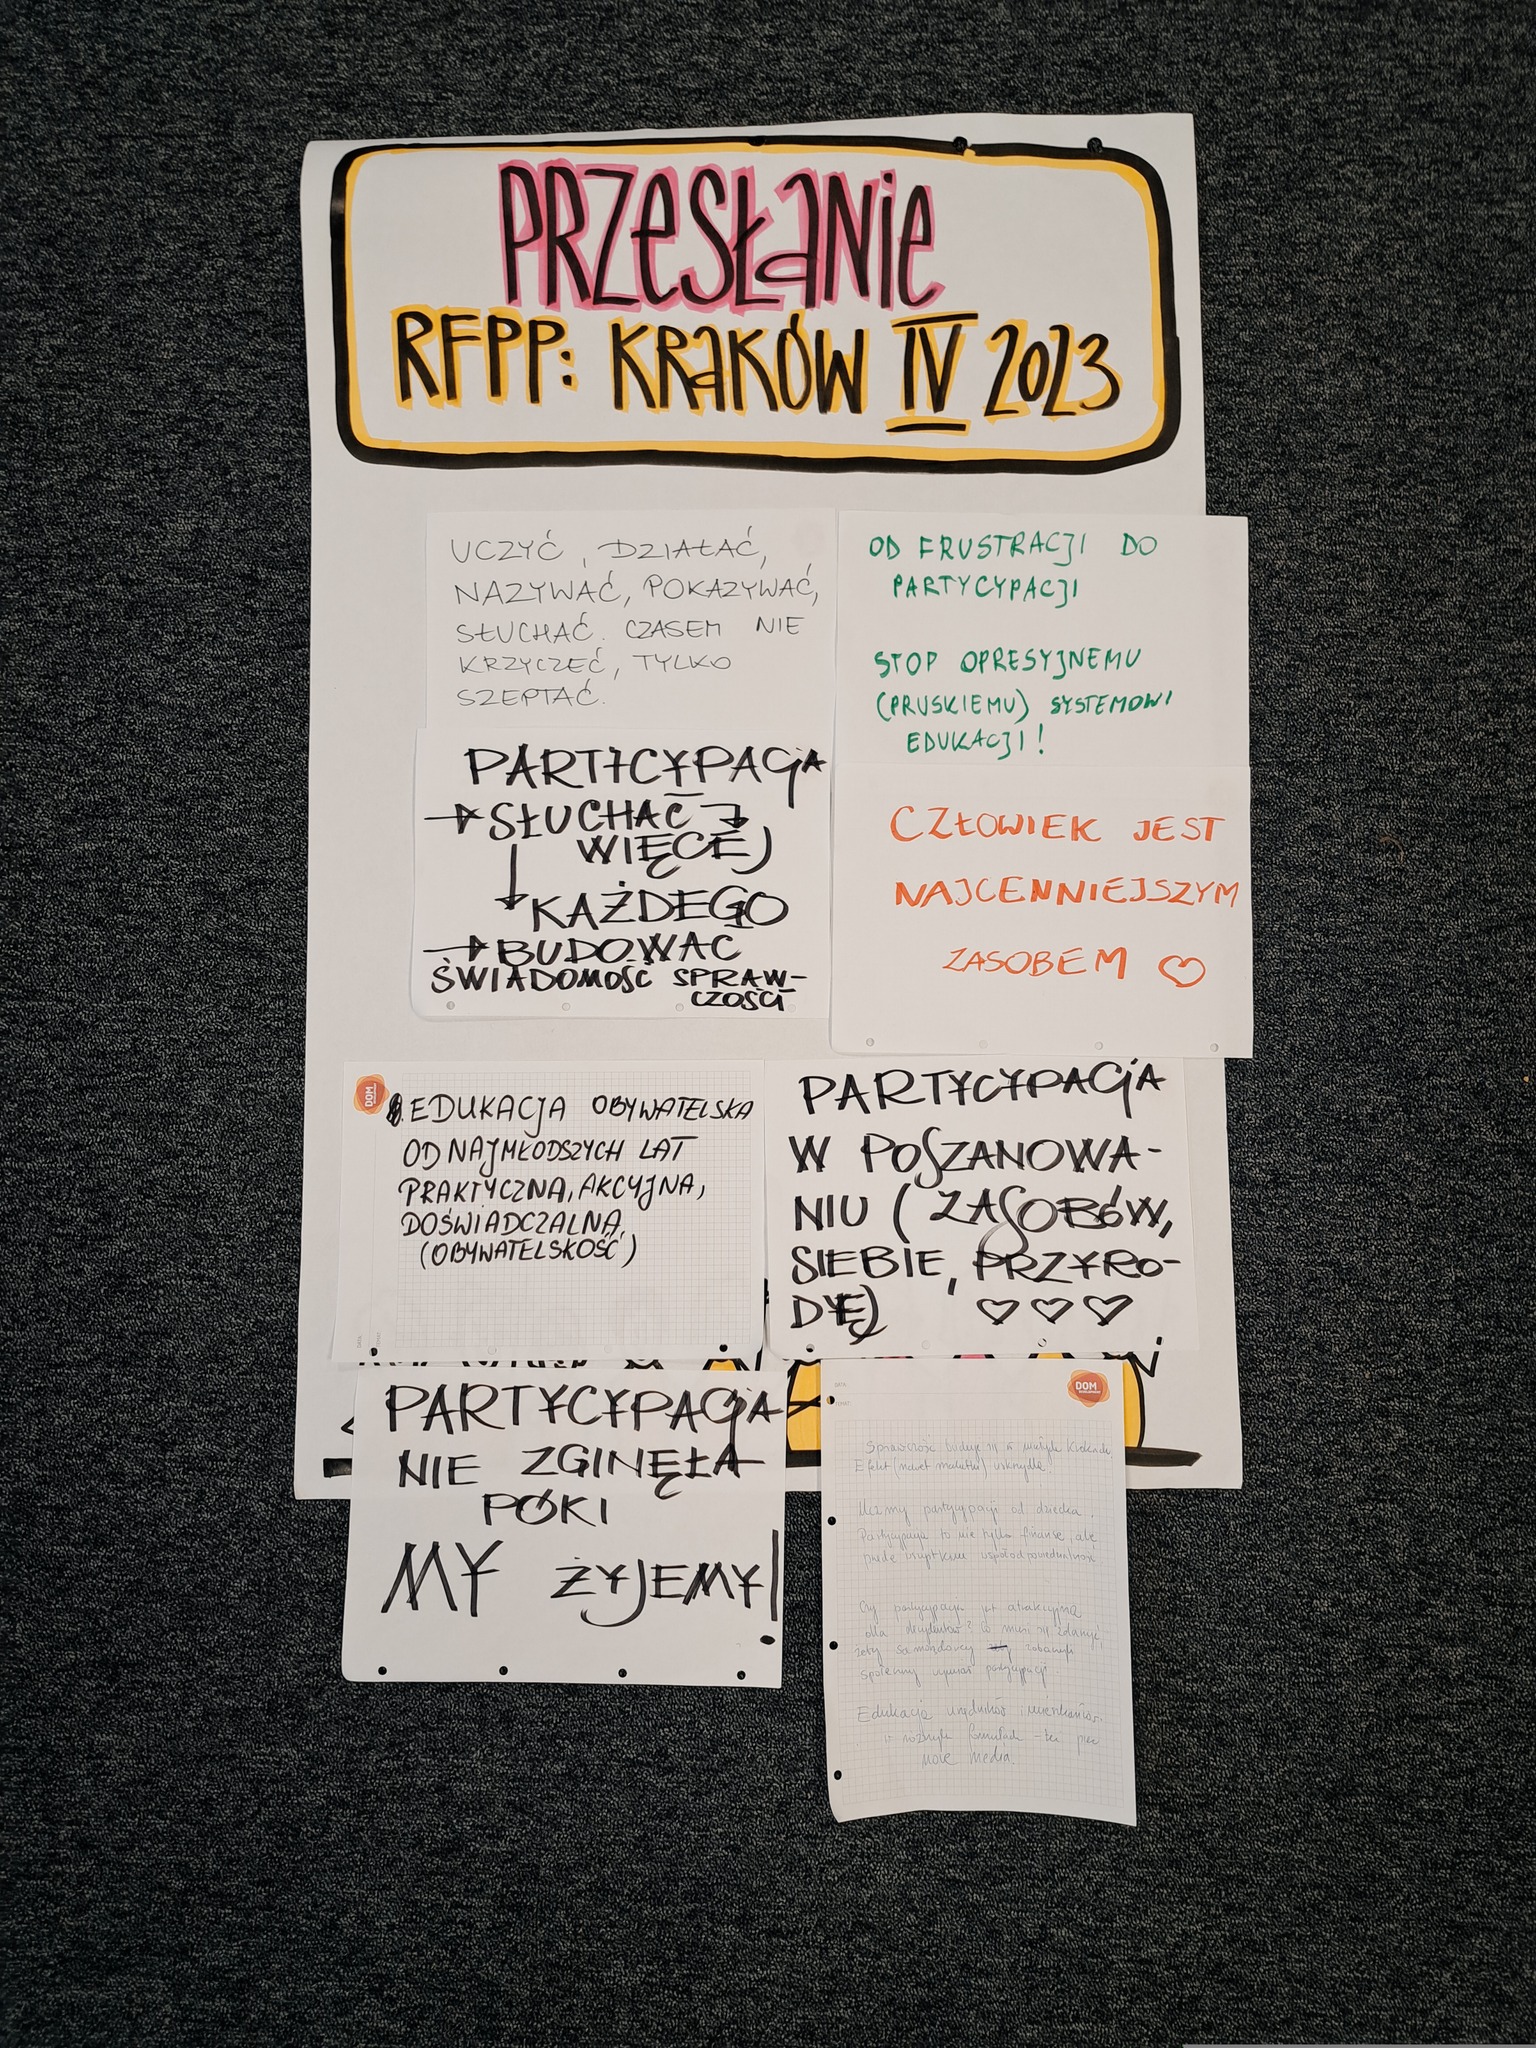 PRZESŁANIE
RFPP: KRAKÓW IV 2023
UCZYĆ, DZIAŁAĆ,
NAZYWAĆ, POKAZYWAĆ,
SŁUCHAĆ. CZASEM NIE
KRZYCZEĆ, TYLKO
SZEPTAĆ.
OD FRUSTRACJI DO
PARTYCYPACJI
STOP OPRESYJNEMU
(PRUSKIEMU) SYSTEMOWI
EDUKACJI!
PARTYCYPACJA
→ SŁUCHAĆ
WIĘCEJ
KAŻDEGO
→ BUDOWAĆ
ŚWIADOMOŚĆ SPRAW-
CZOŚCI
CZŁOWIEK JEST
NAJCENNIEJSZYM
ZASOBEM ♡
DOM
EDUKACJA OBYWATELSKA
OD NAJMŁODSZYCH LAT
PRAKTYCZNA, AKCYJNA,
DOŚWIADCZALNA.
(OBYWATELSKOŚĆ)
PARTYCYPACJA
W POSZANOWA-
NIU (ZASOBÓW,
SIEBIE, PRZYRO-
DY) ♡♡♡
PARTYCYPACJA
NIE ZGINĘŁA
PÓKI
MY ŻYJEMY!
DATA:
TEMAT:
DOM
Sprawczość buduje się w
Efekt (nawet malutki) uskrzydla.
Uczmy partycypacji od dziecka.
Partycypacja to nie tylko finanse, ale
przede wszystkim współodpowiedzialność
Czy partycypacja jest atrakcyjna
dla decydentów? Co musi się zdarzyć,
żeby samorządowcy zobaczyli
społeczny wymiar partycypacji
Edukacja urzędników i mieszkańców.
w różnych formułach – też przez
nowe media.